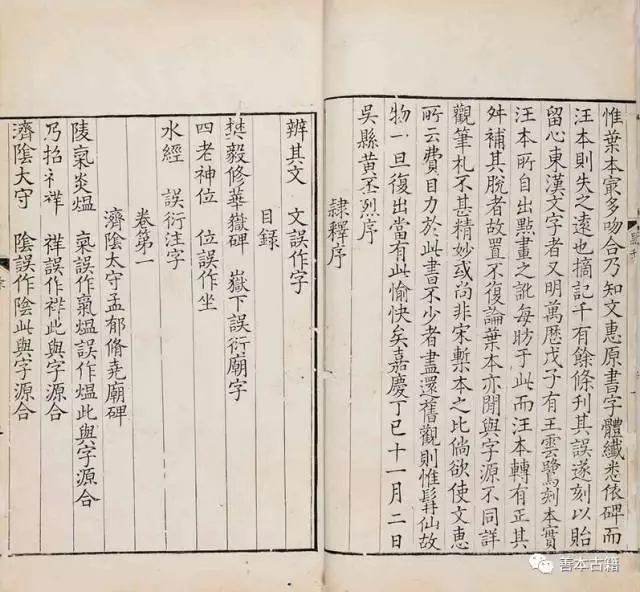 惟葉本最多吻合乃知文惠原書字體纖悉依碑而
汪本則失之遠也摘記千有餘條刋其誤遂刻以貽
留心東漢文字者又明萬歷戊子有王雲鷺刻本實
汪本所自出點畫之訛每昉于此而汪本轉有正其
舛補其脫者故置不復論葉本亦閒與字源不同詳
觀筆札不甚精妙或尚非宋槧本之比倘欲使文惠
所云費目力於此書不少者盡還舊觀則惟髯仙故
物一旦復出當有此愉快矣嘉慶丁巳十一月二日
吳縣黃丕烈序
隷釋序
辨其文　文誤作字
目録
樊毅修華嶽碑　嶽下誤衍廟字
四老神位　位誤作坐
水經　誤衍注字
卷第一
濟隂太守孟郁脩堯廟碑
陵氣炎熅　氣誤作氣熅誤作煴此與字源合
乃招礻祥　祥誤作祥此與字源合
濟隂太守　隂誤作陰此與字源合
善本古籍